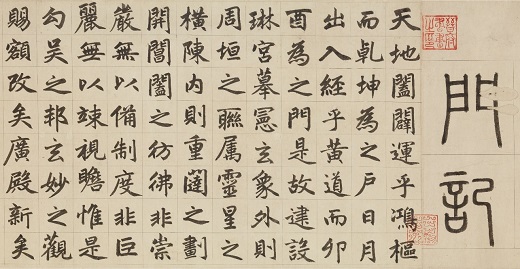 門記
天地闔闢運乎鴻樞
而乾坤為之戶日月
出入經乎黃道而卯
酉為之門是故建設
琳宮摹憲玄象外則
周垣之聯属靈星之
橫陳內則重闥之劃
開閶闔之彷彿非崇
嚴無以備制度非巨
麗無以竦視瞻惟是
勾吳之邦玄妙之觀
賜額改矣廣殿新矣